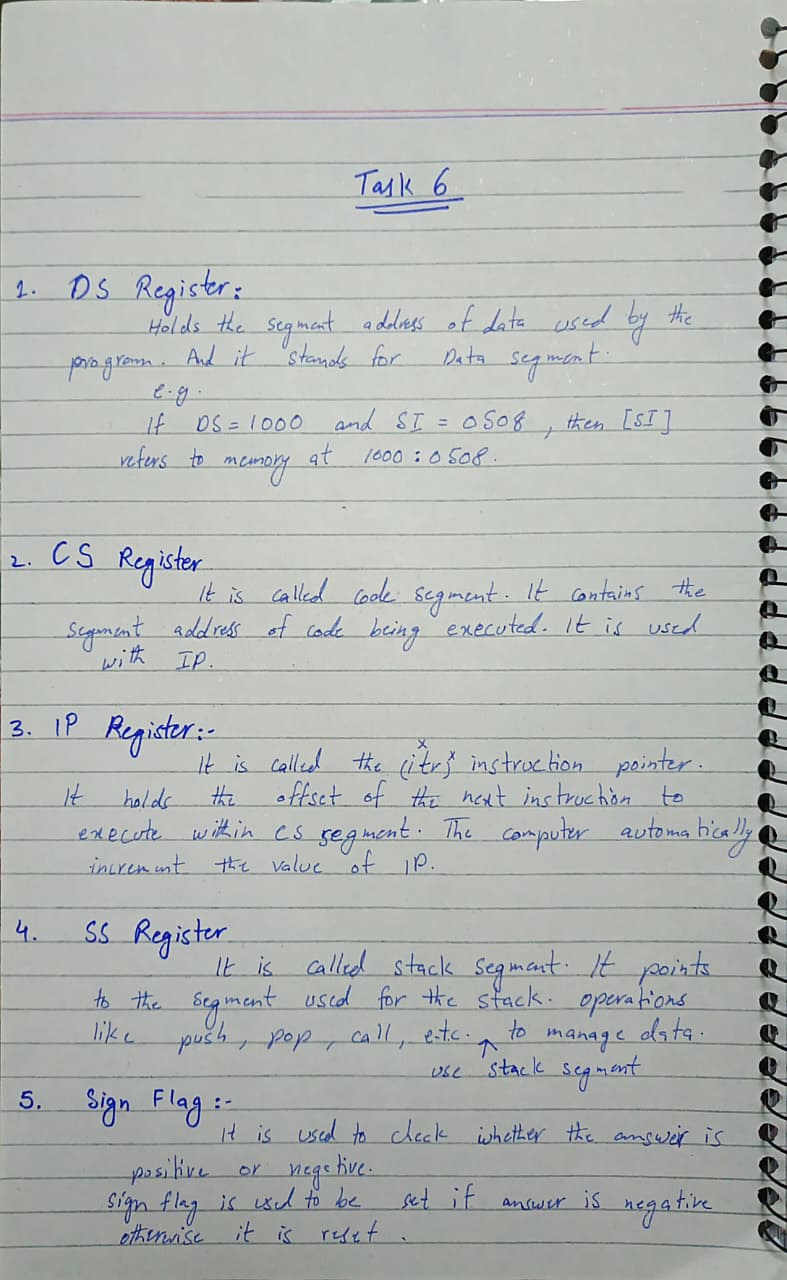 Task 6
1. DS Register:
Holds the segment address of data used by the
program. And it stands for Data segment.
e.g.
If DS = 1000 and SI = 0508, then [SI]
refers to memory at 1000 : 0508.
2. CS Register
It is called code segment. It contains the
segment address of code being executed. It is used
with IP.
3. IP Register:-
It is called the (itr) instruction pointer.
It holds the offset of the next instruction to
execute within CS segment. The computer automatically
increment the value of IP.
4. SS Register
It is called stack segment. It points
to the segment used for the stack. operations
like push, pop, call, e.t.c. ↑ to manage data.
use stack segment
5. Sign Flag :-
It is used to check whether the answer is
positive or negetive.
Sign flag is used to be set if answer is negative
otherwise it is reset.